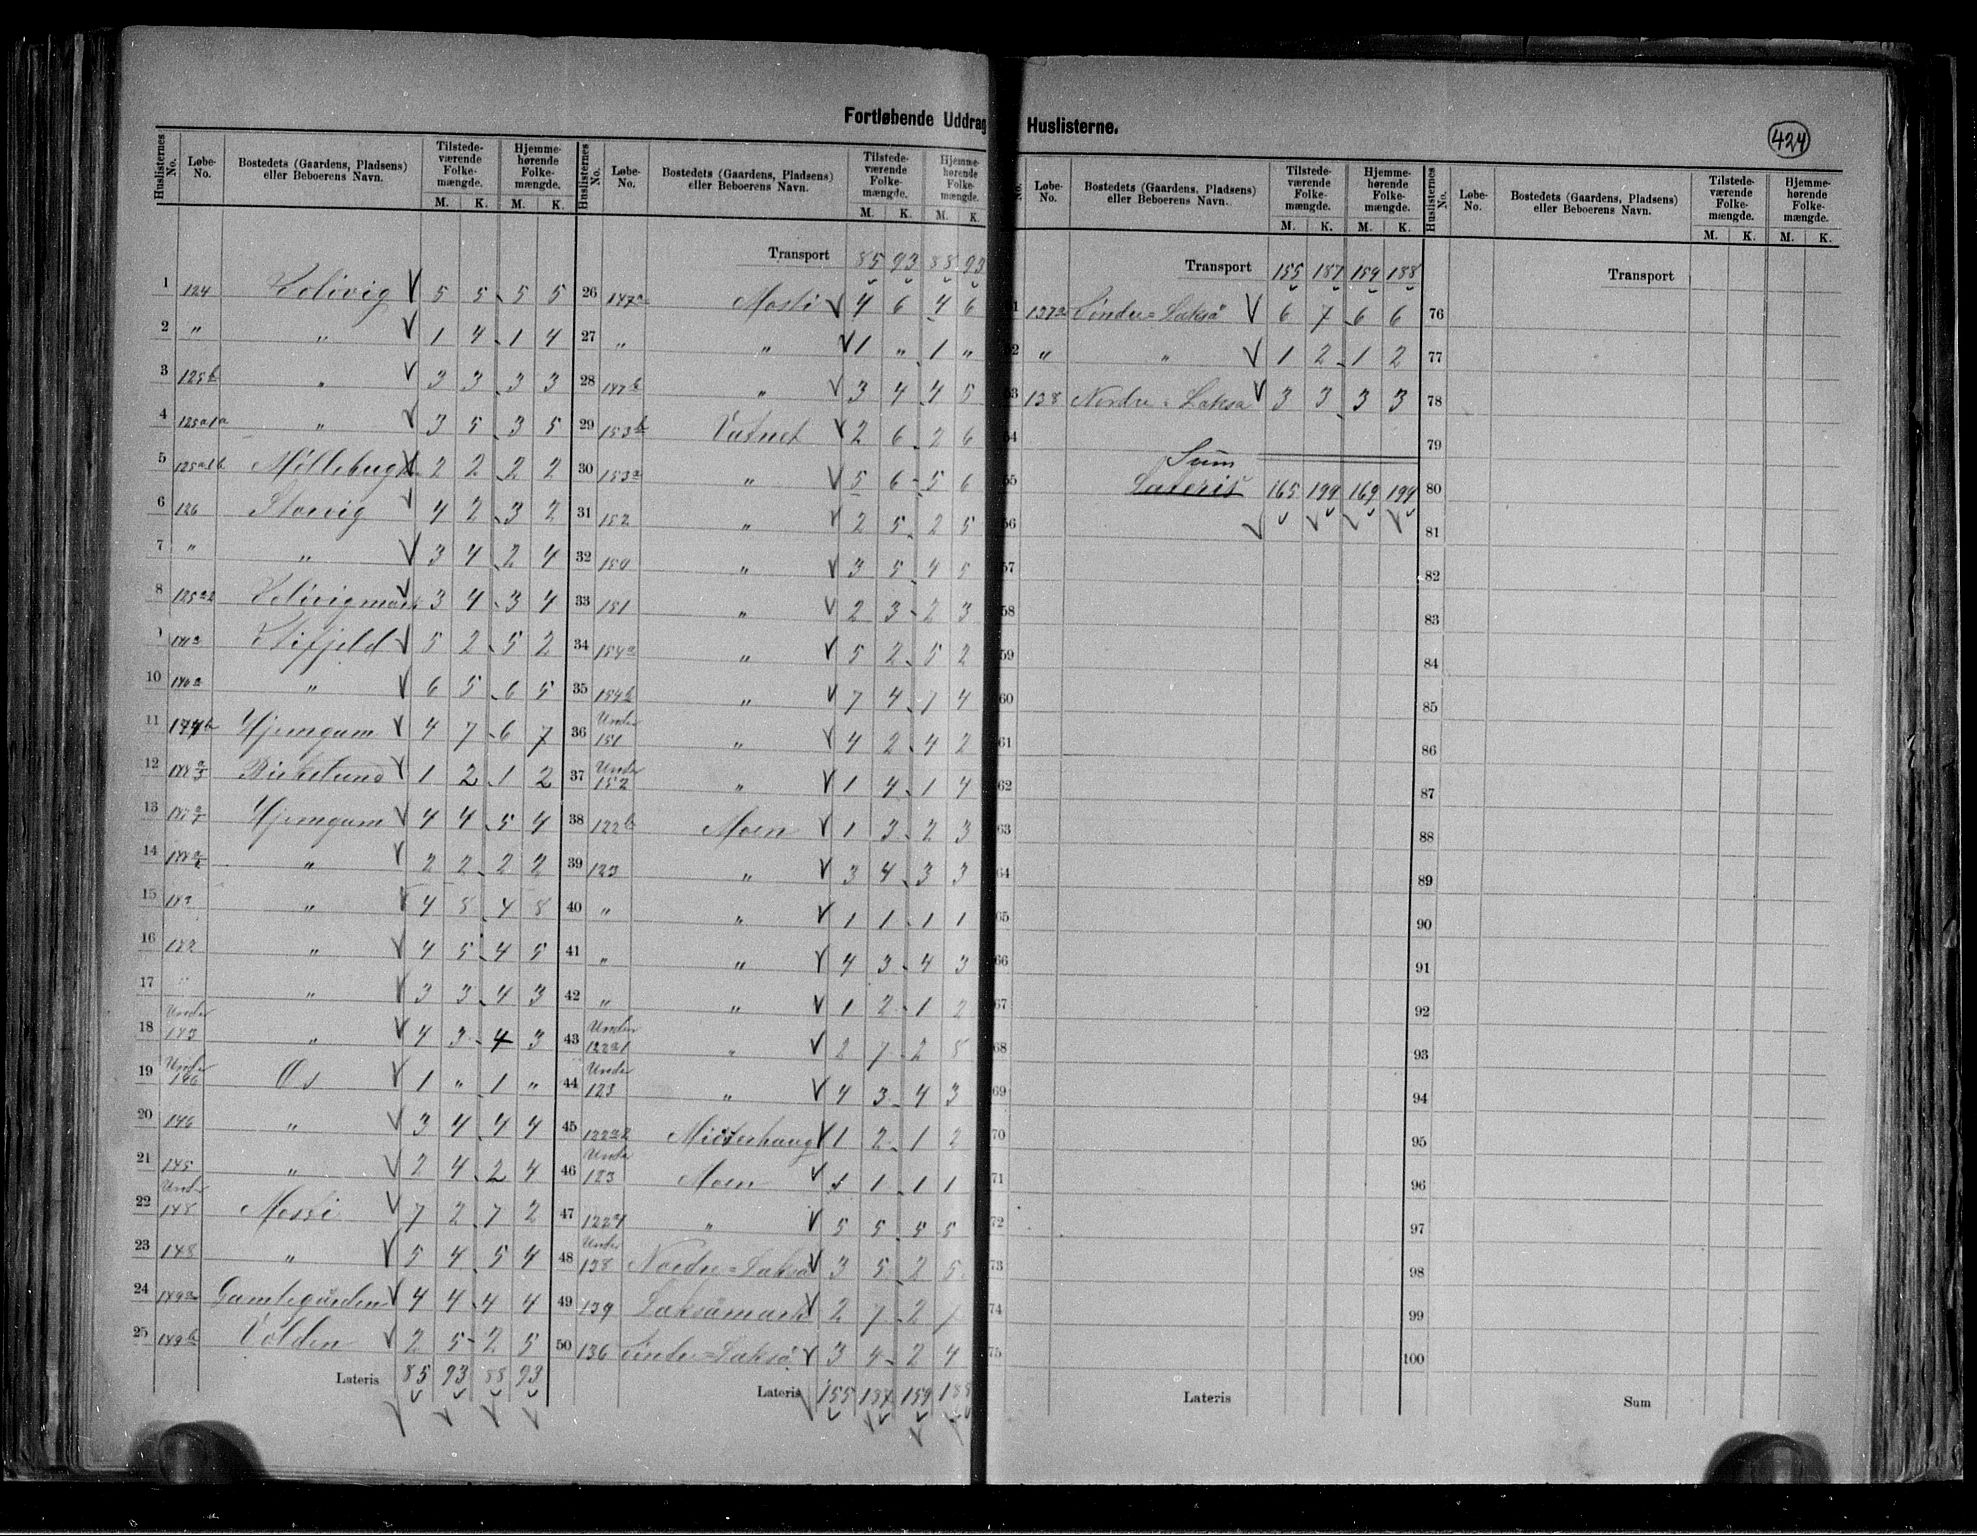 Fortløbende Uddrag Huslisterne.
424
Huslisternes No. Løbe-No. Bostedets (Gaardens, Pladsens) eller Beboerens Navn. Tilstedeværende Folkemængde. M. K. Hjemmehørende Folkemængde. M. K.
1 124 Solivig V 5 5 5 5
2 " " V 1 4 1 4
3 125b " V 3 3 3 3
4 125a1a " V 3 5 3 5
5 125a1b V 2 2 2 2
6 126 Storvig V 4 2 3 2
7 " " V 3 4 2 4
8 125a2 V 3 4 3 4
9 V 5 2 5 2
10 " V 6 5 6 5
11 Hjemgam V 4 7 6 7
12 Birkelund V 1 2 1 2
13 Hjemgam V 4 4 5 4
14 " V 2 2 2 2
15 " V 4 8 4 8
16 " V 4 5 4 5
17 " V 3 3 4 3
18 Under 143 " V 4 3 4 3
19 Under 146 Os V 1 " 1 "
20 146 " V 3 4 4 4
21 145 " V 2 4 2 4
22 Under 148 Mosti V 7 2 7 2
23 148 " V 5 4 5 4
24 149a Gamlegården V 4 4 4 4
25 149b Volden V 2 5 2 5
Lateris 85 93 88 93
Huslisternes No. Løbe-No. Bostedets (Gaardens, Pladsens) eller Beboerens Navn. Tilstedeværende Folkemængde. M. K. Hjemmehørende Folkemængde. M. K.
Transport 85 93 88 93
26 147a Mosti V 4 6 4 6
27 " " V 1 " 1 "
28 147b " V 3 4 4 5
29 153b Vatnet V 2 6 2 6
30 153a " V 5 6 5 6
31 152 " V 2 5 2 5
32 150 " V 3 5 4 5
33 151 " V 2 3 2 3
34 154a " V 5 2 5 2
35 154b " V 7 4 7 4
36 Under 151 " V 4 2 4 2
37 Under 152 " V 1 4 1 4
38 122b Moen V 1 3 2 3
39 123 " V 3 4 3 3
40 " " V 1 1 1 1
41 " " V 4 3 4 3
42 " " V 1 2 1 2
43 Under 122a1 " V 2 7 2 8
44 Under 123 " V 4 3 4 3
45 122a2 V 1 2 1 2
46 Under 123 Moen V 1 1 1 1
47 " V 5 5 5 5
48 Under 138 Nordre=Lakså V 3 5 2 5
49 139 Laksåmark V 2 7 2 7
50 136 Søndre=Lakså V 3 4 2 4
Lateris 155 187 159 188
No. Løbe-No. Bostedets (Gaardens, Pladsens) eller Beboerens Navn. Tilstedeværende Folkemængde. M. K. Hjemmehørende Folkemængde. M. K.
Transport 155 187 159 188
1 137a Søndre=Lakså V 6 7 6 6
2 " " V 1 2 1 2
3 138 Nordre=Lakså V 3 3 3 3
54
55 Sum Lateris 165 199 169 199
56
57
58
59
60
61
62
63
64
65
66
67
68
69
70
71
72
73
74
75
Lateris
Huslisternes No. Løbe-No. Bostedets (Gaardens, Pladsens) eller Beboerens Navn. Tilstedeværende Folkemængde. M. K. Hjemmehørende Folkemængde. M. K.
Transport
76
77
78
79
80
81
82
83
84
85
86
87
88
89
90
91
92
93
94
95
96
97
98
99
100
Sum